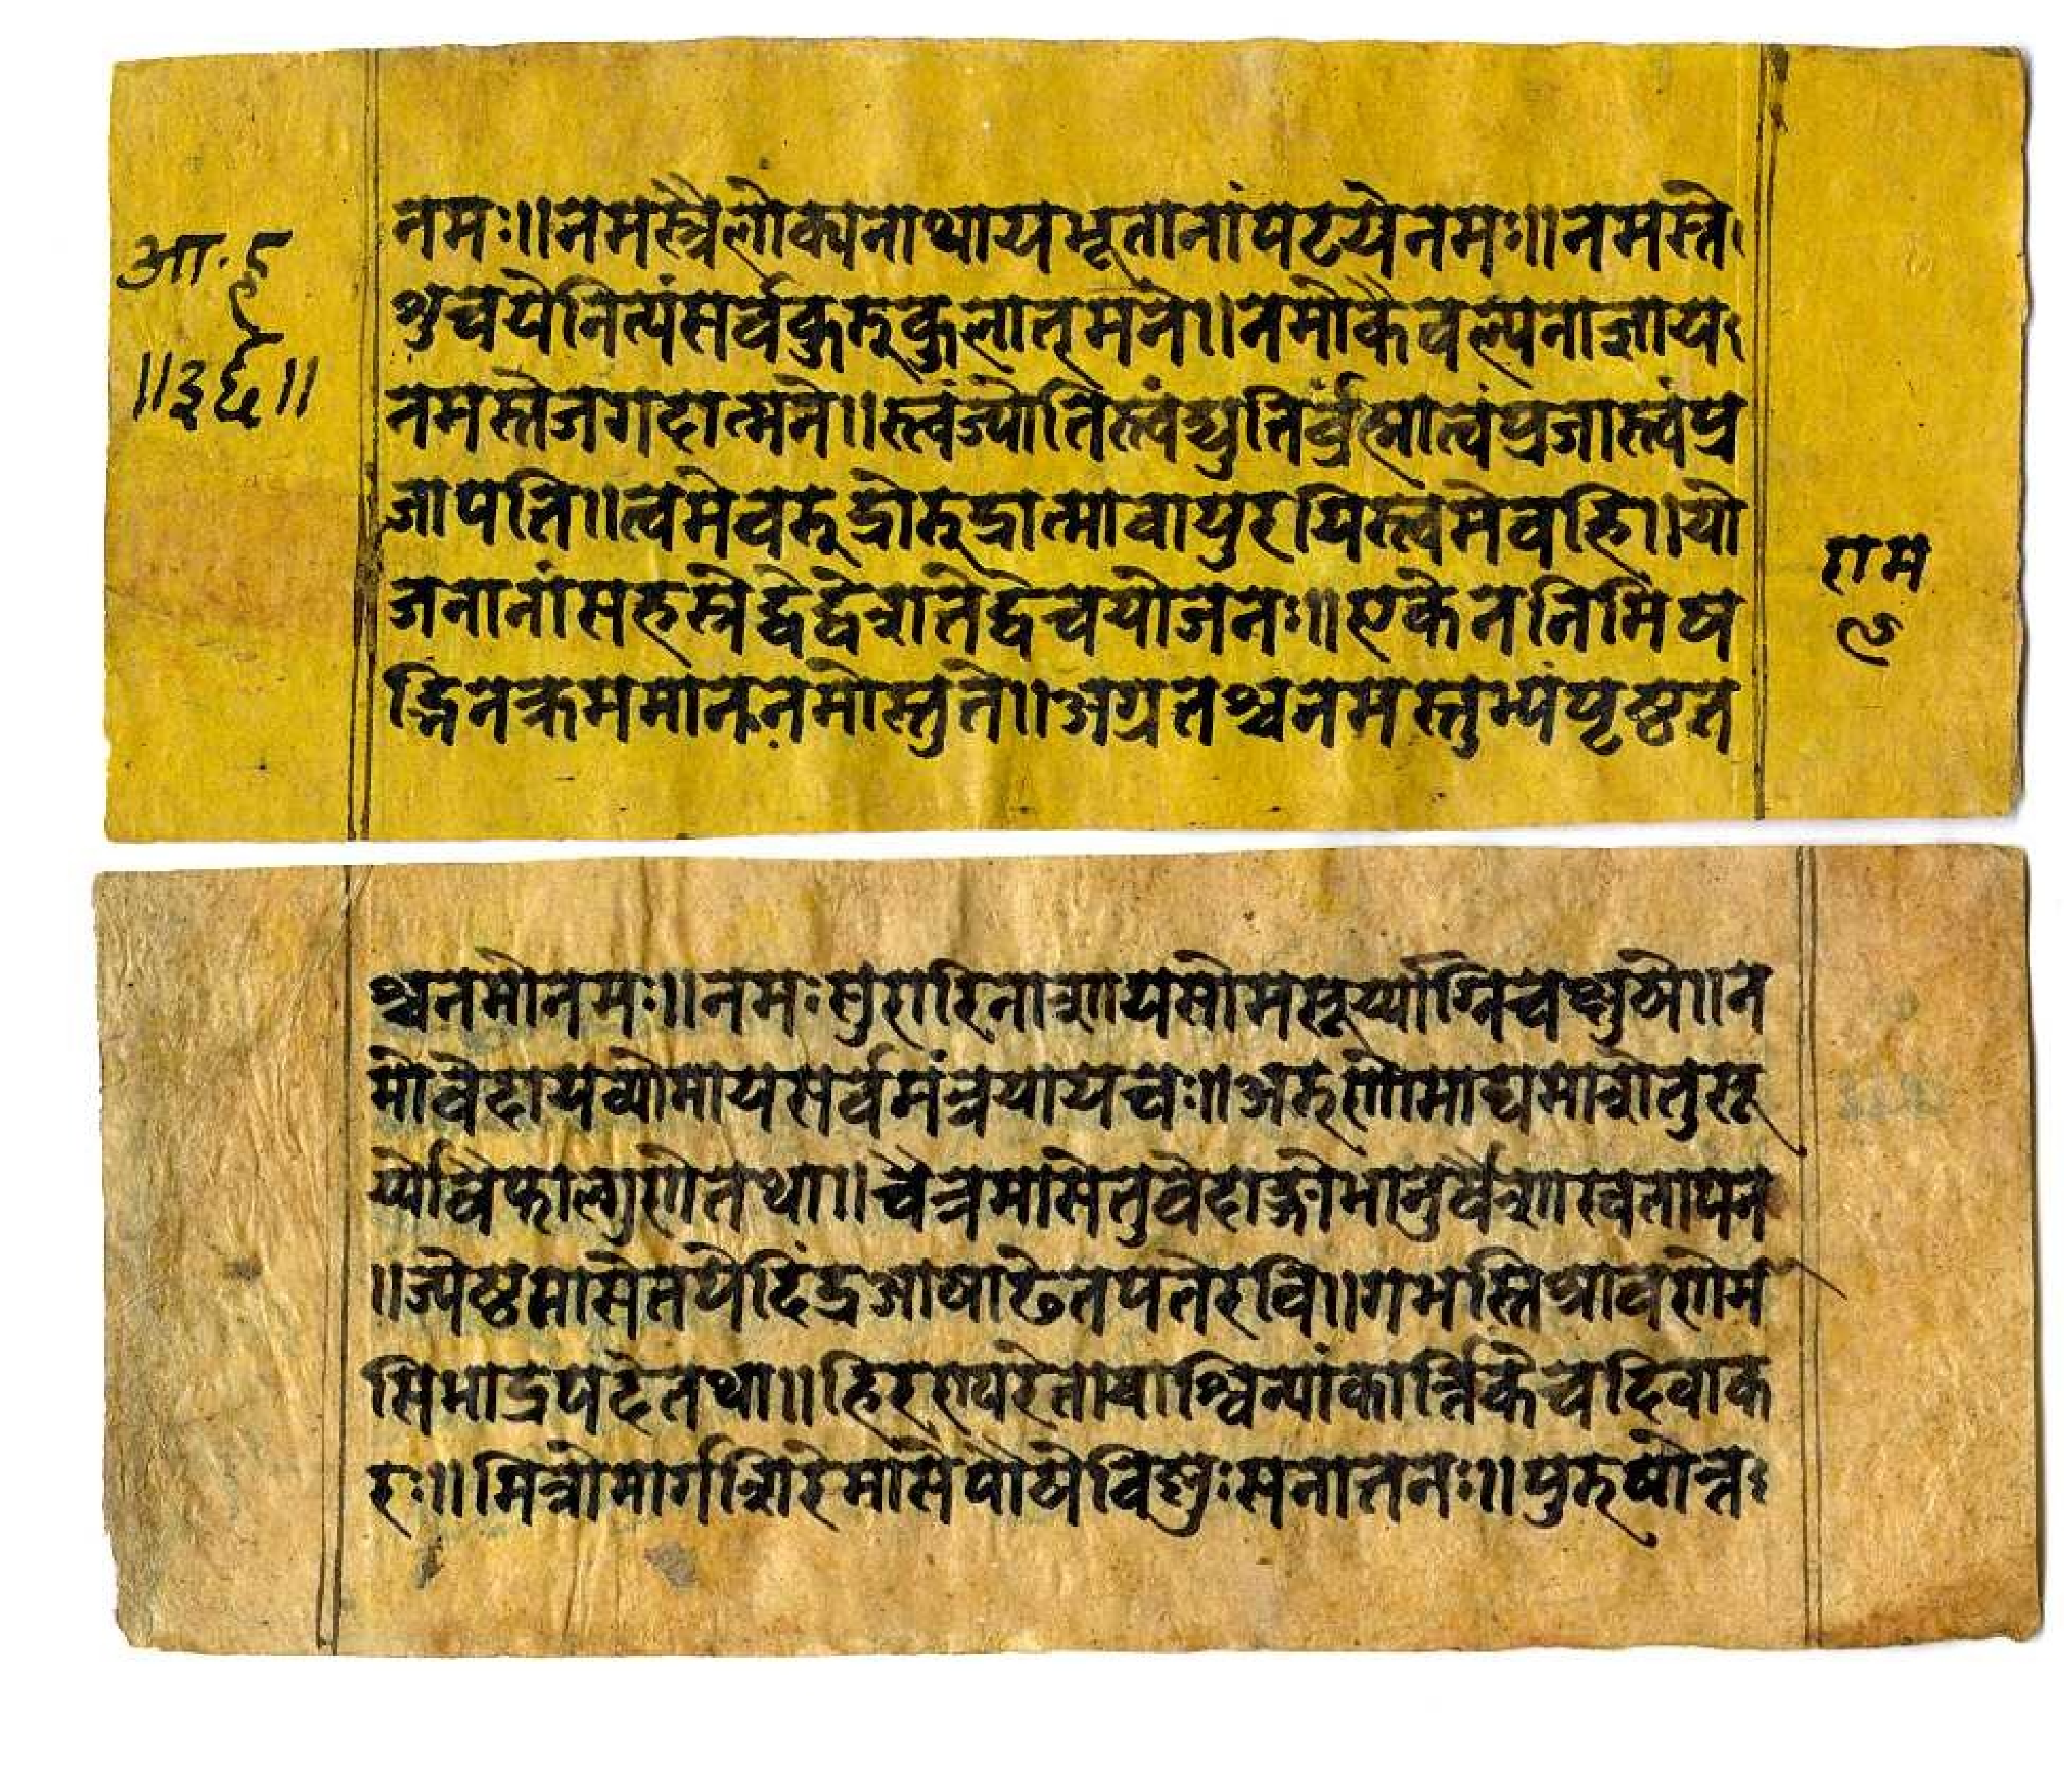 आ.हृ
॥३६॥
नमः॥नमस्त्रैलोक्यनाथायभूतानांपटयेनमः॥नमस्ते
शुचयेनित्यंसर्वकुरुकुलात्मने॥नमोकैवल्यनाशाय
नमस्तेजगदात्मने॥स्त्वंज्योतिस्त्वंद्युतिर्व्रह्मात्वंप्रजास्त्वंप्र
जापति॥त्वमेवरूद्रोरूद्रात्मावायुरग्निस्त्वमेवहि॥यो
जनानांसहस्त्रेद्वेद्वेशतेद्वेचयोजनः॥एकेननिमिष
द्धिनक्रममाननमोस्तुते॥अग्रतश्चनमस्तुभ्यंपृष्ठत
राम
९
श्चनमोनमः॥नमःसुरारिनाशायसोमसूर्य्याग्निचक्षुषे॥न
मोवेदायव्योमायसर्वमंत्रयायचः॥अरुणोमाघमाशेतुसू
र्य्योवैफाल्गुणेतथा॥चैत्रमासेतुवेदाङ्गोभानुर्वैशाखतापन
॥ज्येष्ठमासेतपेदिंद्रआषाढेतपतेरवि॥गभस्तिश्रावणेम
सिभाद्रपदेतथा॥हिरण्यरेतावाश्विन्यांकार्त्तिकेचदिवाक
रः॥मित्रोमार्गशिरेमासेपौषेविष्णुःसनातनः॥पुरुषोत्त